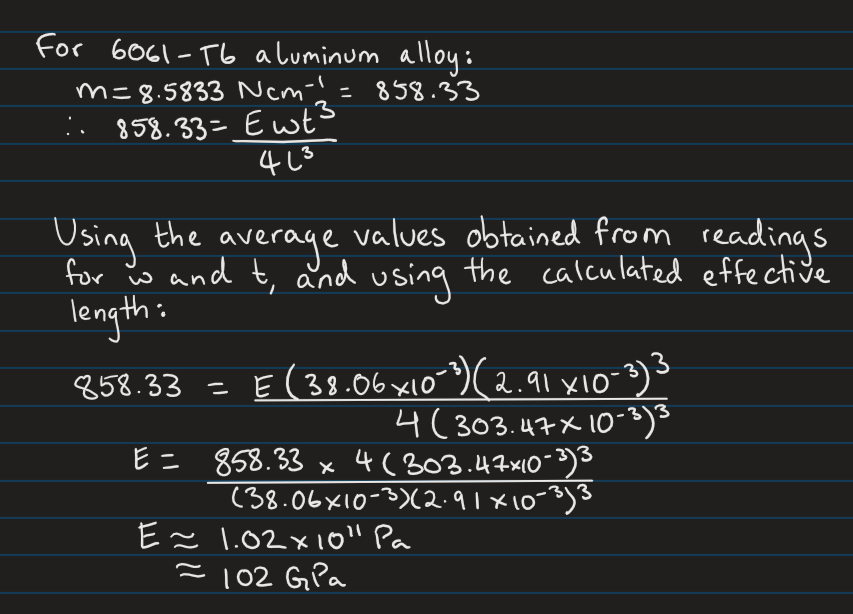 For 6061-T6 aluminum alloy:
m = 8.5833 Ncm⁻¹ = 858.33
∴ 858.33 = Ewt³ / 4L³
Using the average values obtained from readings
for w and t, and using the calculated effective
length:
858.33 = E(38.06×10⁻³)(2.91×10⁻³)³ / 4(303.47×10⁻³)³
E = 858.33 × 4(303.47×10⁻³)³ / (38.06×10⁻³)(2.91×10⁻³)³
E ≈ 1.02×10¹¹ Pa
≈ 102 GPa